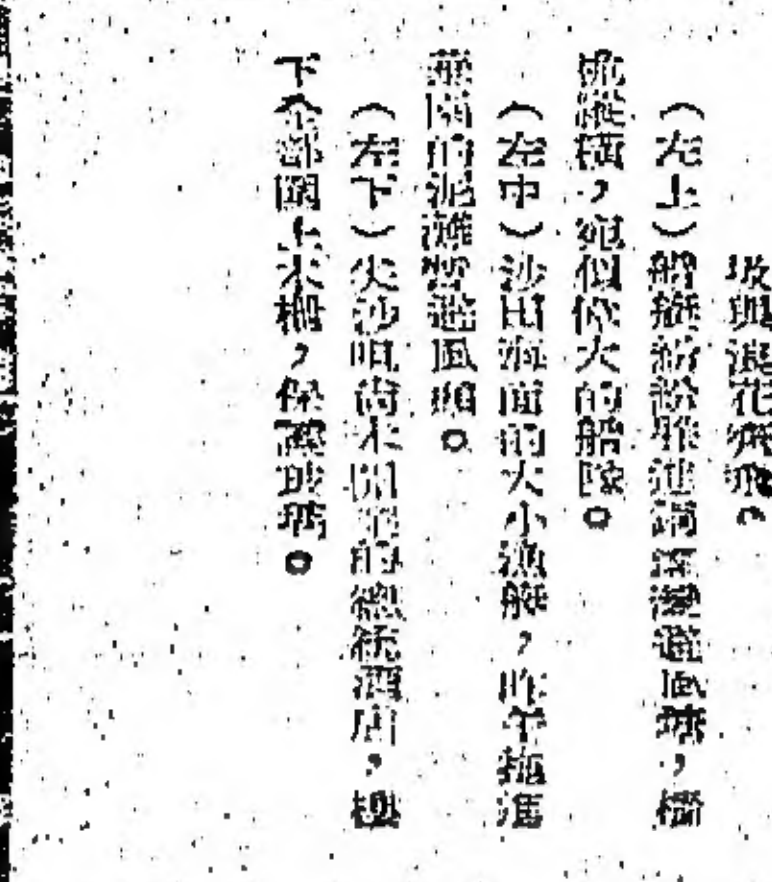 坡與浪花齊飛。
（左上）船艇紛紛駛進銅鑼灣避風塘，檣
桅縱橫，宛似偌大的船隊。
（左中）沙田海面的大小漁艇，昨午拖進
的泥灘暫避風頭。
（左下）尖沙咀尚未開業的總統酒店，樓
下全部圍上木柵，保護玻璃。